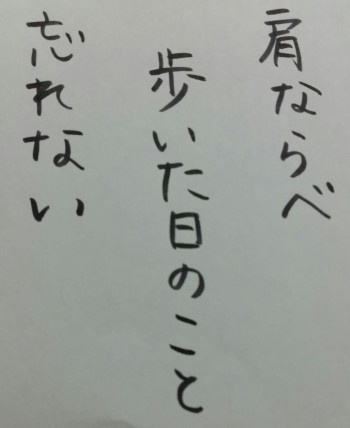 肩ならべ
歩いた日のこと
忘れない